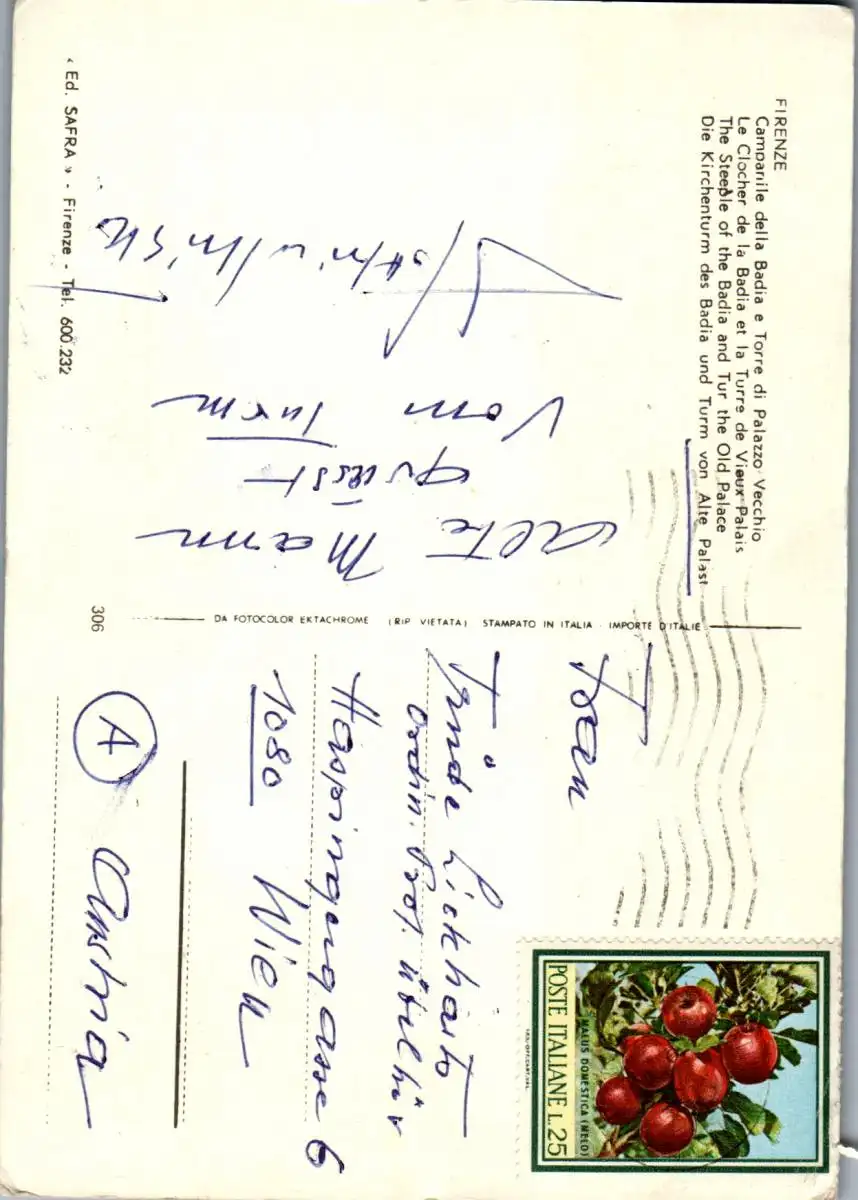 FIRENZE
Campanile della Badia e Torre di Palazzo Vecchio
Le Clocher de la Badia et la Turre de Vieux Palais
The Steeple of the Badia and Tur the Old Palace
Die Kirchenturm des Badia und Turm von Alte Palast
alte Mann
grüsst
vom Turm
« Ed. SAFRA » - Firenze - Tel. 600.232
DA FOTOCOLOR EKTACHROME (RIP VIETATA) STAMPATO IN ITALIA - IMPORTÉ D'ITALIE
306
POSTE ITALIANE L. 25
MALUS DOMESTICA (MELO)
Frau
Ordin. Prof.
Haspingergasse 6
1080 Wien
A Austria